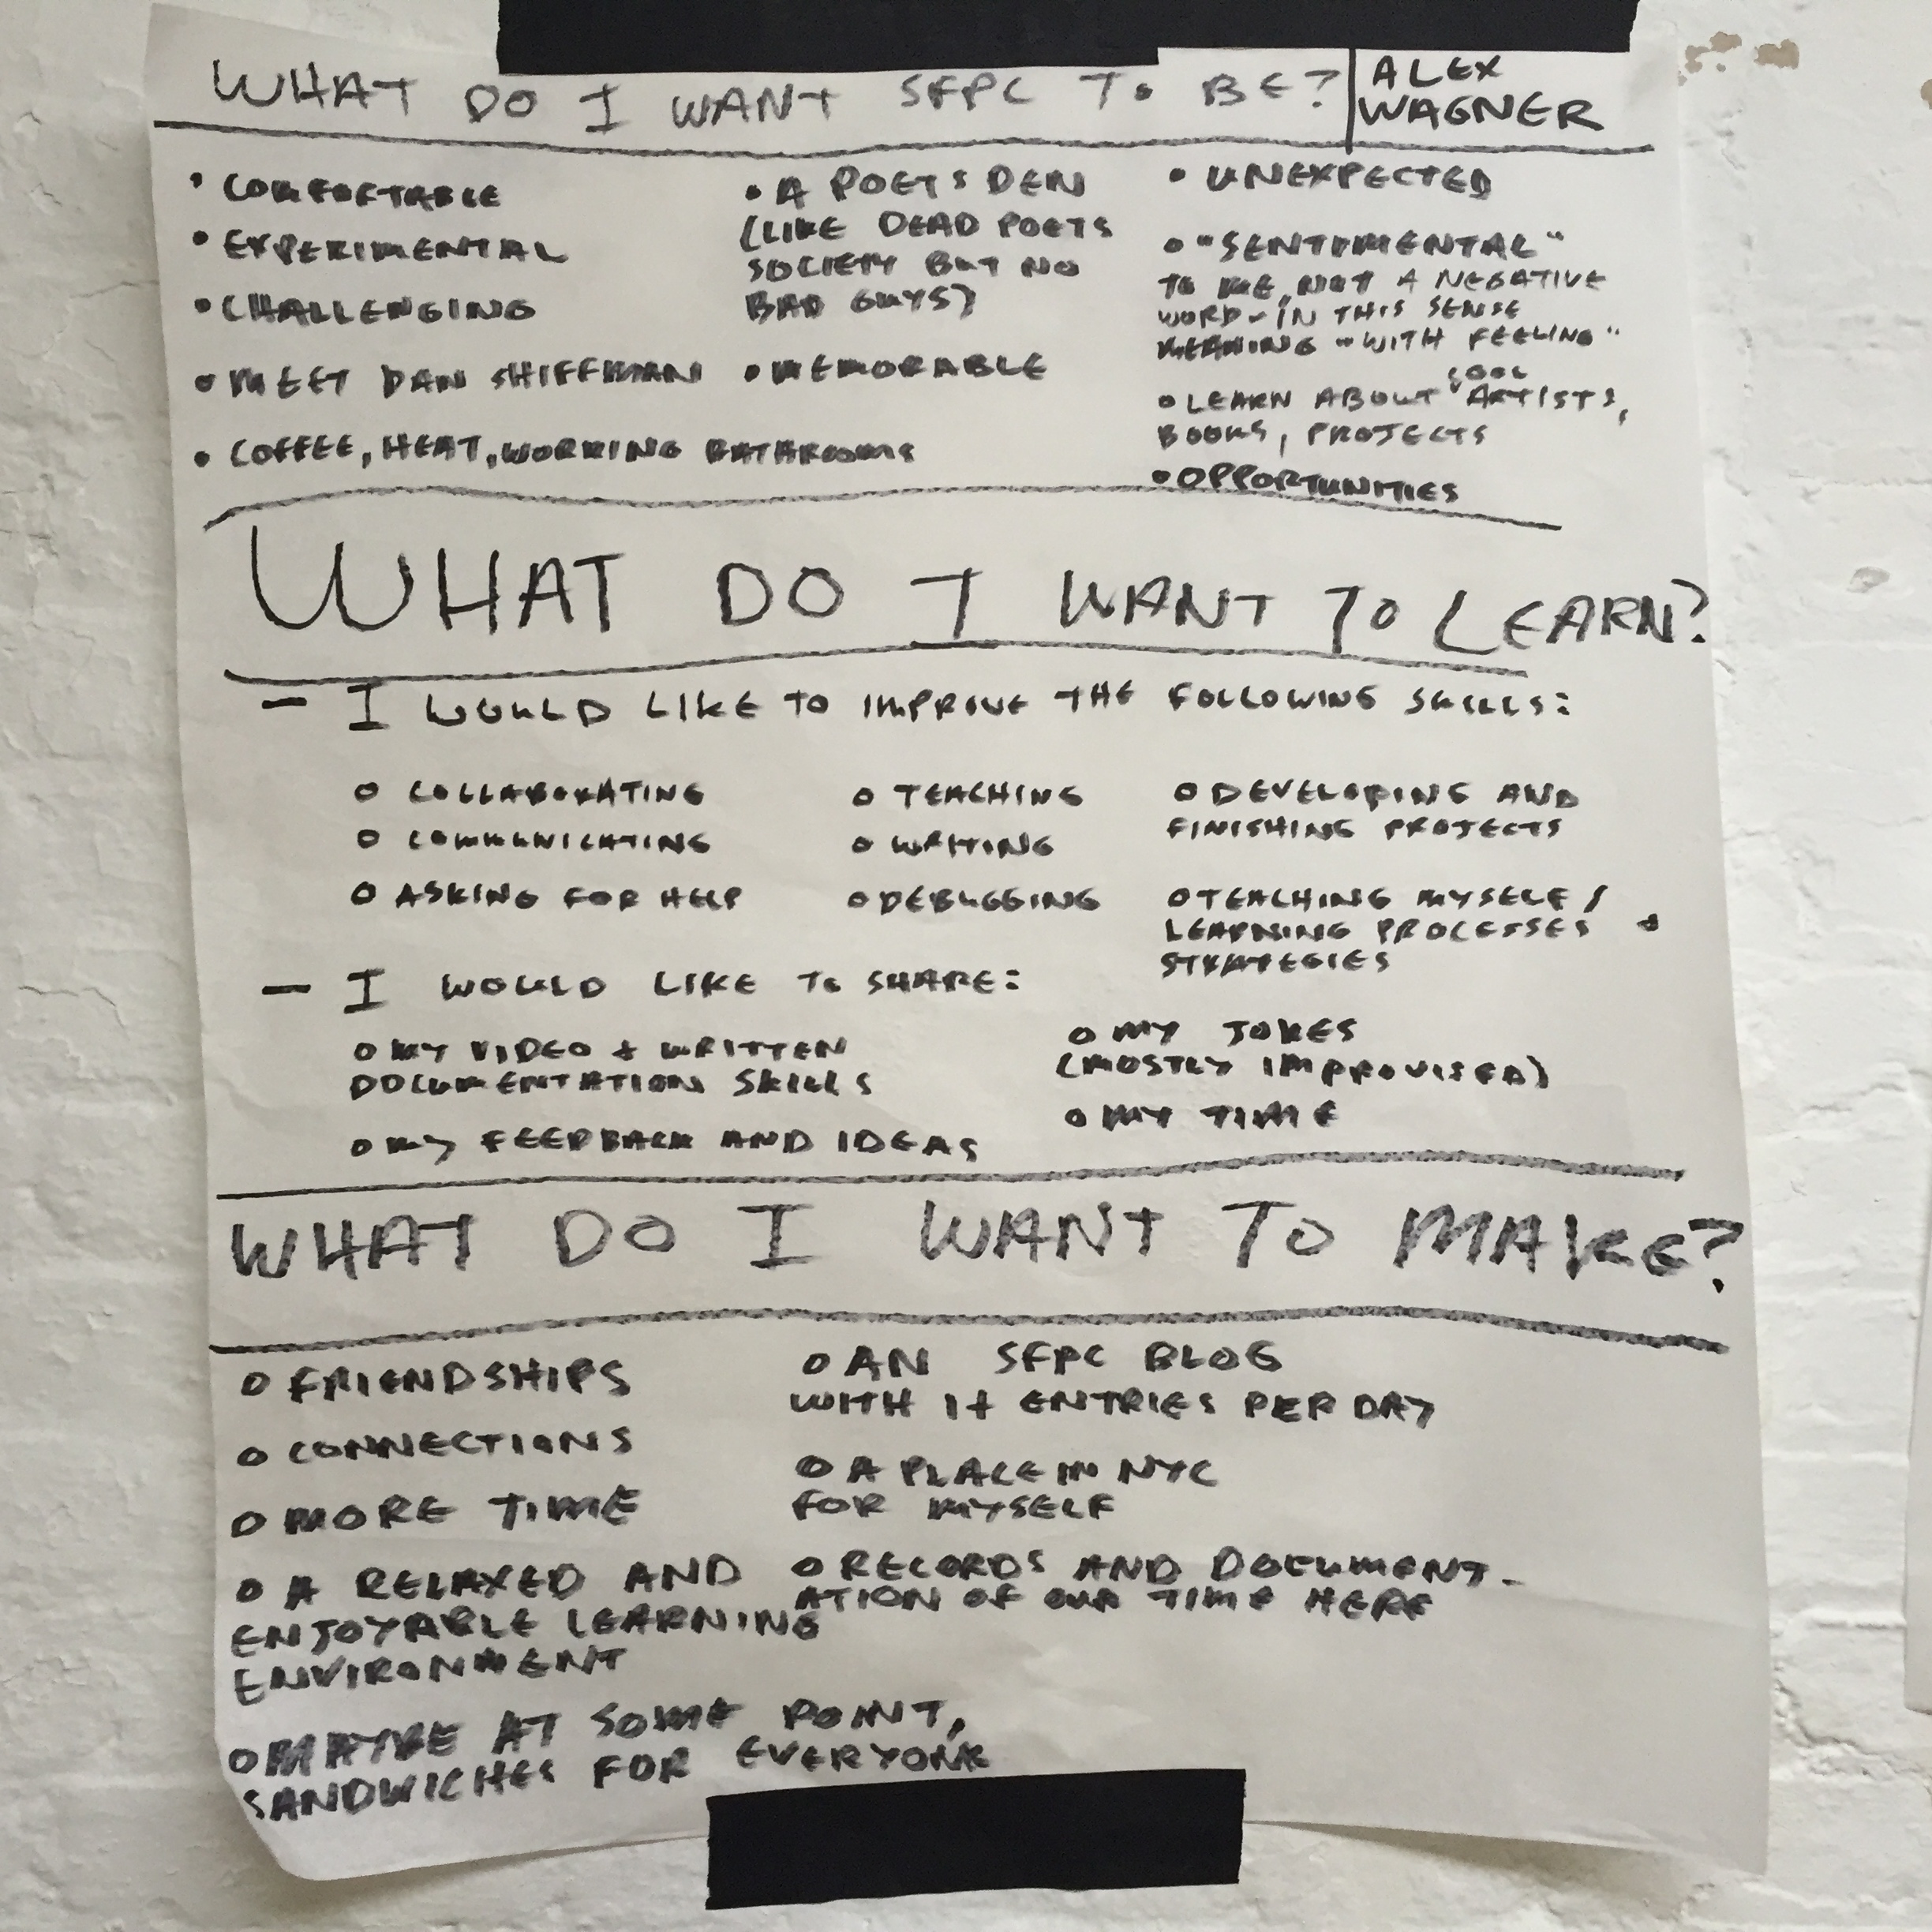 WHAT DO I WANT SFPC TO BE?
ALEX
WAGNER
• COMFORTABLE
• EXPERIMENTAL
• CHALLENGING
• MEET DAN SHIFFMAN
• COFFEE, HEAT, WORKING BATHROOMS
• A POETS DEN
(LIKE DEAD POETS
SOCIETY BUT NO
BAD GUYS)
• MEMORABLE
• UNEXPECTED
• "SENTIMENTAL"
TO ME, NOT A NEGATIVE
WORD - IN THIS SENSE
MEANING "WITH FEELING"
• LEARN ABOUT COOL ARTISTS,
BOOKS, PROJECTS
• OPPORTUNITIES
WHAT DO I WANT TO LEARN?
- I WOULD LIKE TO IMPROVE THE FOLLOWING SKILLS:
o COLLABORATING
o COMMUNICATING
o ASKING FOR HELP
o TEACHING
o WRITING
o DEBUGGING
o DEVELOPING AND
FINISHING PROJECTS
o TEACHING MYSELF /
LEARNING PROCESSES +
STRATEGIES
- I WOULD LIKE TO SHARE:
o MY VIDEO + WRITTEN
DOCUMENTATION SKILLS
o MY FEEDBACK AND IDEAS
o MY JOKES
(MOSTLY IMPROVISED)
o MY TIME
WHAT DO I WANT TO MAKE?
o FRIENDSHIPS
o CONNECTIONS
o MORE TIME
o A RELAXED AND
ENJOYABLE LEARNING
ENVIRONMENT
o MAYBE AT SOME POINT,
SANDWICHES FOR EVERYONE
o AN SFPC BLOG
WITH 1+ ENTRIES PER DAY
o A PLACE IN NYC
FOR MYSELF
o RECORDS AND DOCUMENT-
ATION OF OUR TIME HERE